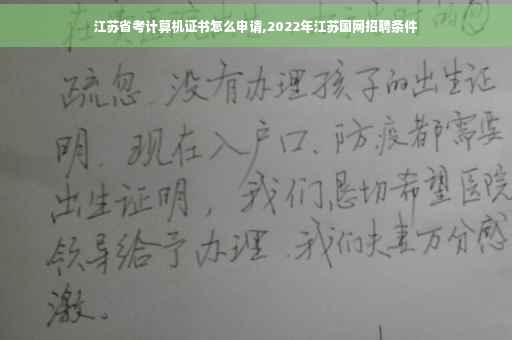 江苏省考计算机证书怎么申请,2022年江苏国网招聘条件
疏忽.没有办理孩子的出生证
明.现在入户口、防疫都需要
出生证明，我们恳切希望医院
领导给予办理.我们夫妻万分感
激。